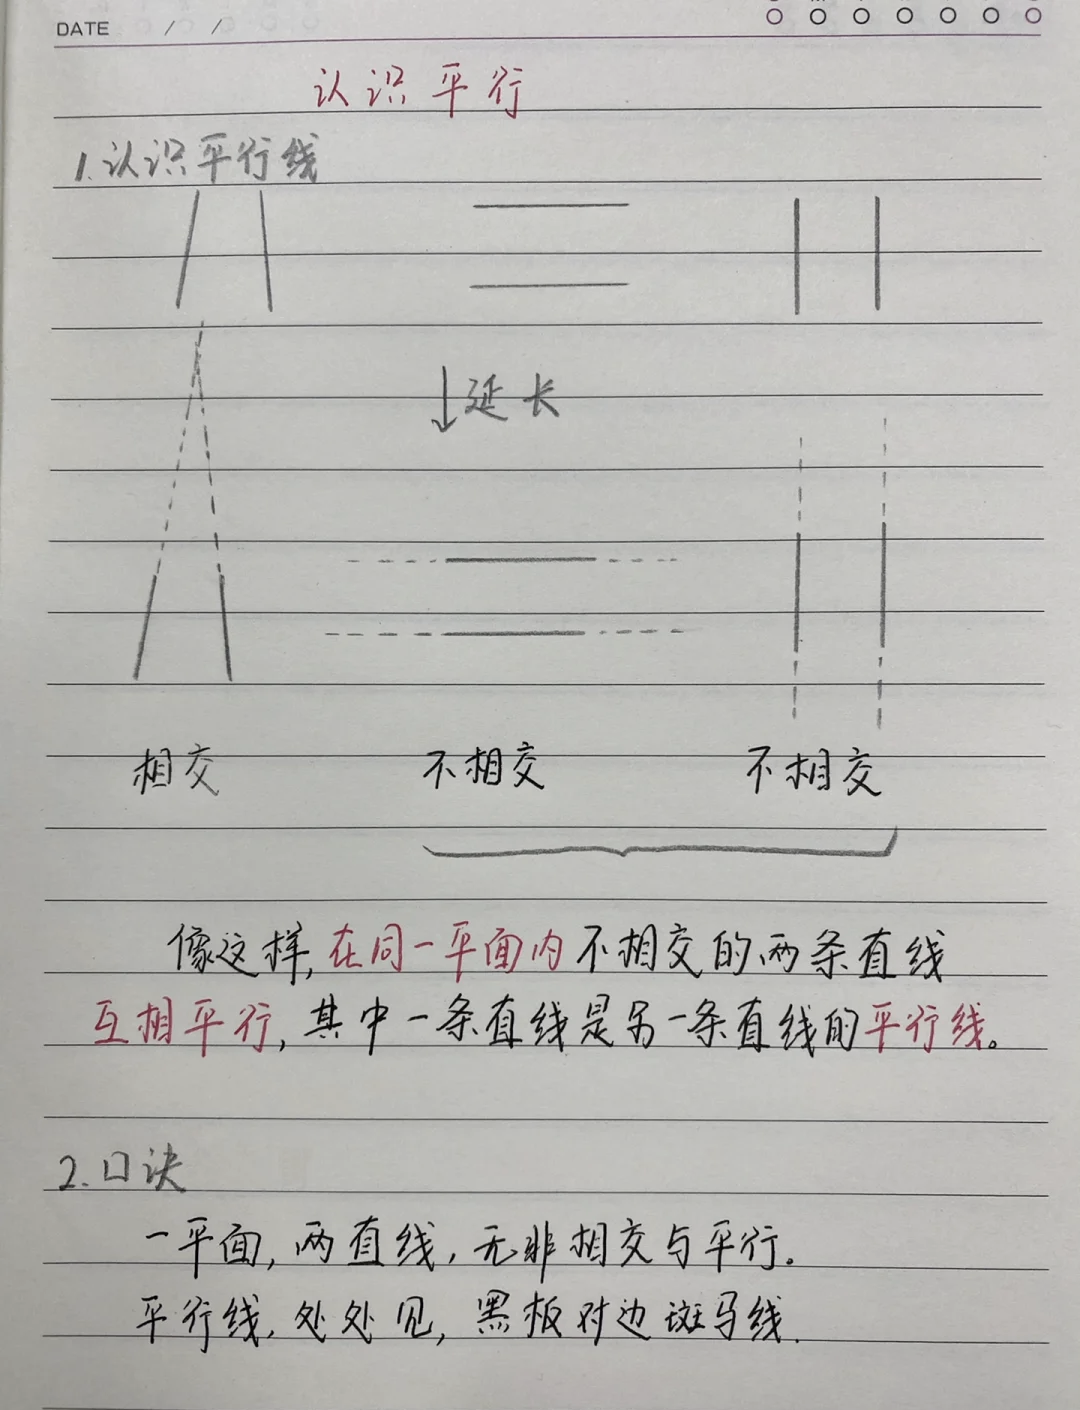 DATE / /
认识平行
1.认识平行线
↓延长
相交 不相交 不相交
像这样,在同一平面内不相交的两条直线
互相平行,其中一条直线是另一条直线的平行线。
2.口诀
一平面,两直线,无非相交与平行.
平行线,处处见,黑板对边斑马线.